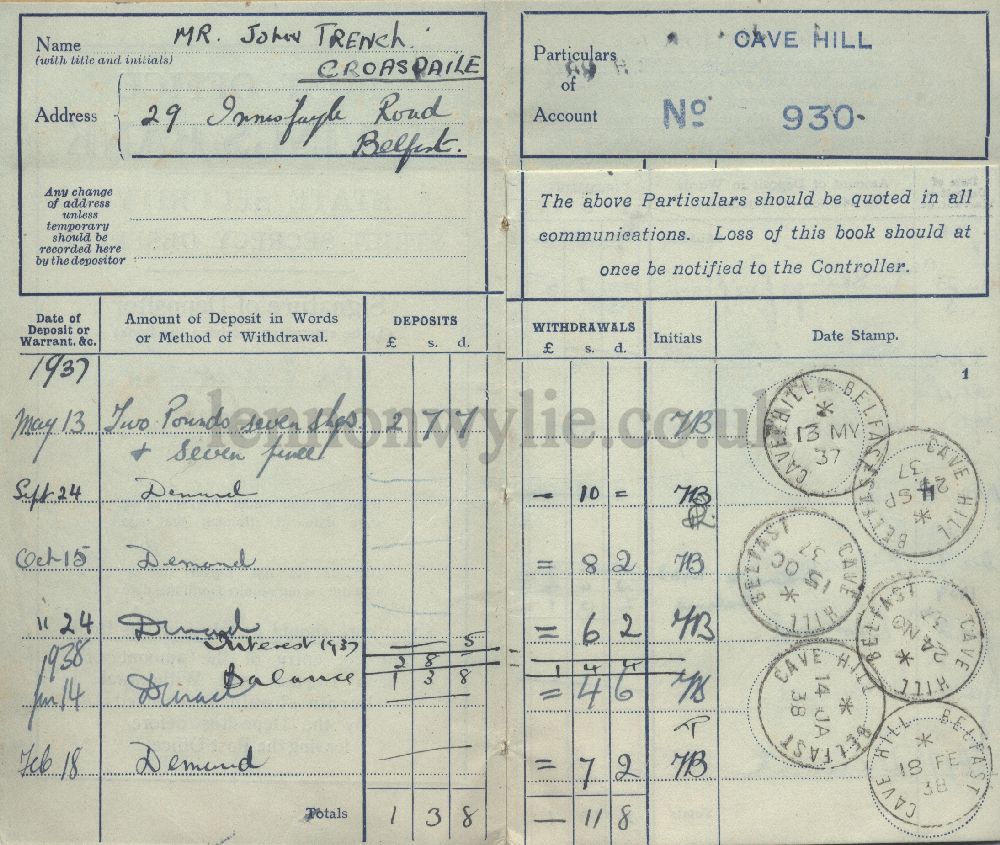 Name MR. JOHN TRENCH
(with title and initials) CROASDAILE
Address 29 Innisfayle Road
Belfast.
Any change
of address
unless
temporary
should be
recorded here
by the depositor
Particulars
of
Account
CAVE HILL
No 930.
The above Particulars should be quoted in all
communications. Loss of this book should at
once be notified to the Controller.
Date of Deposit or Warrant, &c. Amount of Deposit in Words or Method of Withdrawal. DEPOSITS £ s. d. WITHDRAWALS £ s. d. Initials Date Stamp.
1
1937
May 13 Two Pounds seven shgs 2 7 7 JB
& seven pence
Sept 24 Demand - 10 = JB
Oct 15 Demand = 8 2 JB
" 24 Demand = 6 2 JB
Interest 1937 5
1938 2 8 - 1 4 4
Balance 1 3 8
Jan 14 Demand = 4 6 JB
Feb 18 Demand = 7 2 JB
Totals 1 3 8 - 11 8
CAVE HILL BELFAST 13 MY 37
CAVE HILL BELFAST SP 37
CAVE HILL BELFAST 15 OC 37
CAVE HILL BELFAST 24 NO 37
CAVE HILL BELFAST 14 JA 38
CAVE HILL BELFAST 18 FE 38
lennonwylie.co.uk